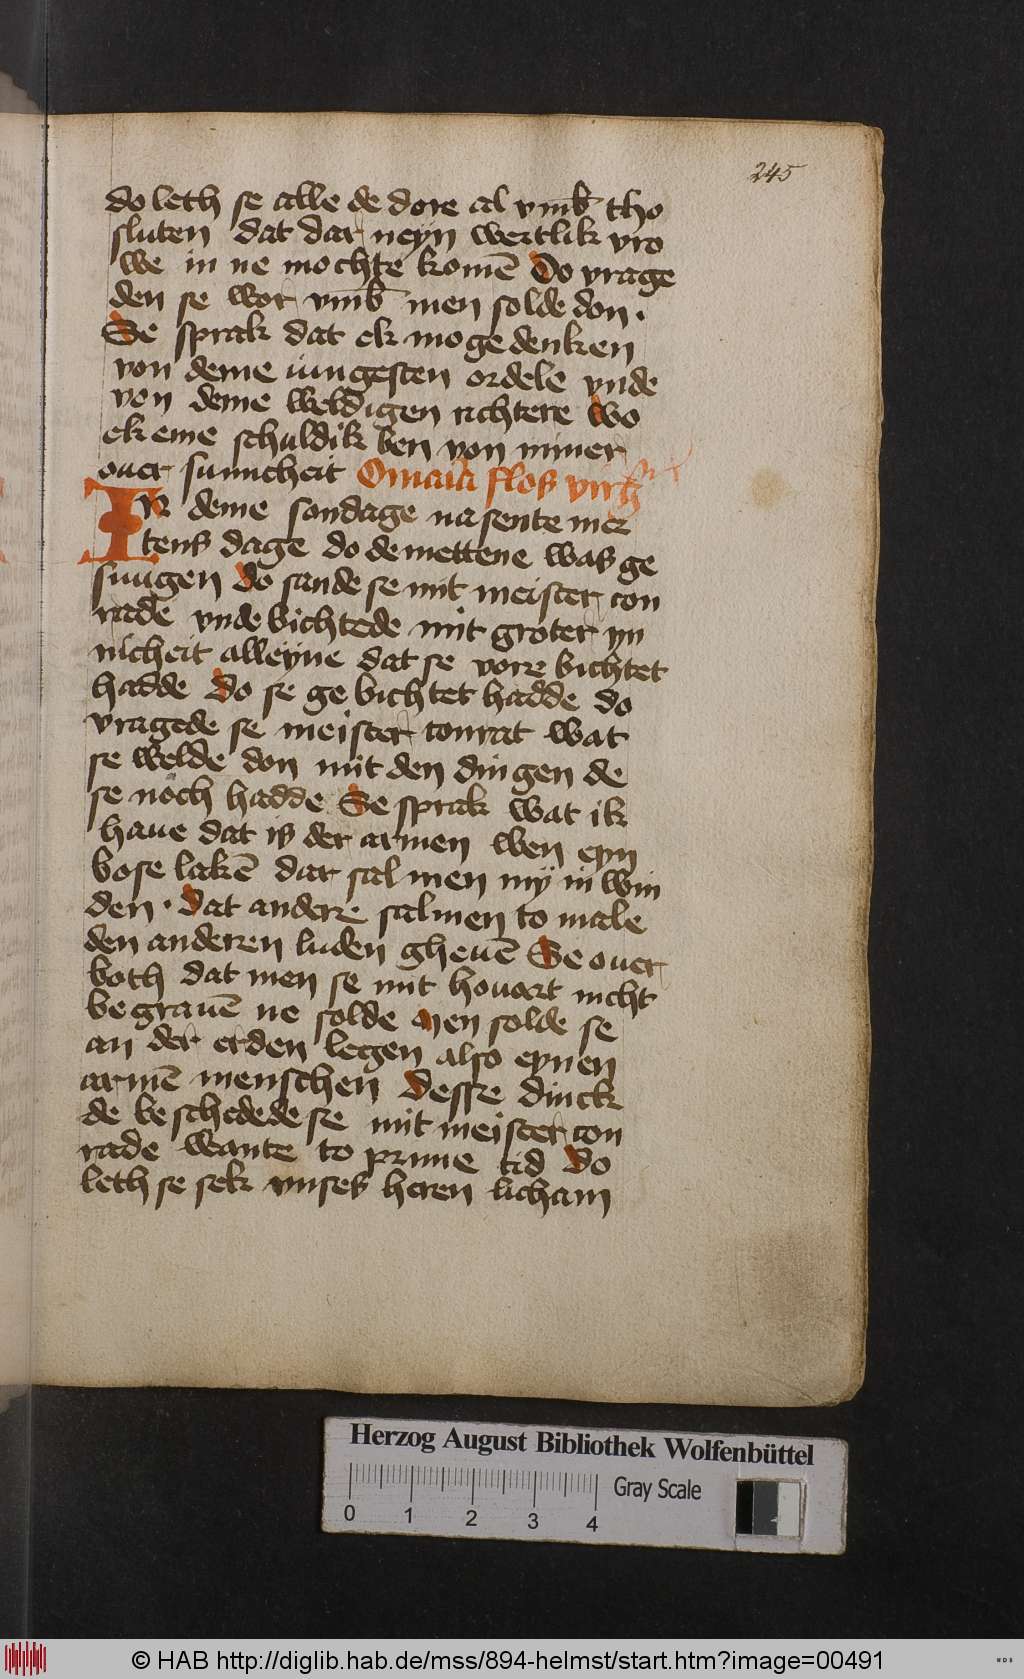 245
do leth se alle de dore al vm̄b tho
sluten dat dar neyn wertlik vro
we in ne mochte komē Do vrage
den se wor vm̄b men solde don .
Se sprak dat ek moge denken
von deme iungesten ordele vnde
von deme weldigen richtere wo
ek eme schuldik ben von miner
ouer sumicheit
IN deme sondage na sente mer
tens dage do de mettene was ge
sungen do sande se mit meister con
rade vnde bichtede mit groter yn
nicheit alleyne dat se vore bichtet
hadde Do se ge bichtet hadde do
vragede se meister conrat wat
se welde don mit den dingen de
se noch hadde Se sprak wat ik
haue dat is der armen wen eyn
bose lakē dar sal men my in win
den . dat andere sal men to male
den anderen luden gheuē Se ouer
both dat men se mit houart nicht
be grauē ne solde Men solde se
an der erden legen also eynen
armē menschen Desse dinck
de beschedede se mit meister con
rade wante to prime tid Do
leth se sek vnses heren licham
Herzog August Bibliothek Wolfenbüttel
Gray Scale
0 1 2 3 4
© HAB http://diglib.hab.de/mss/894-helmst/start.htm?image=00491